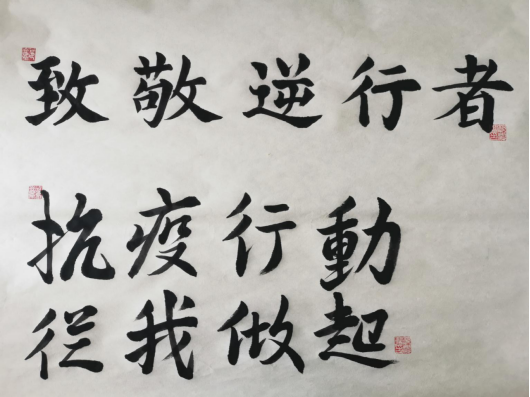 致敬逆行者
抗疫行動
從我做起